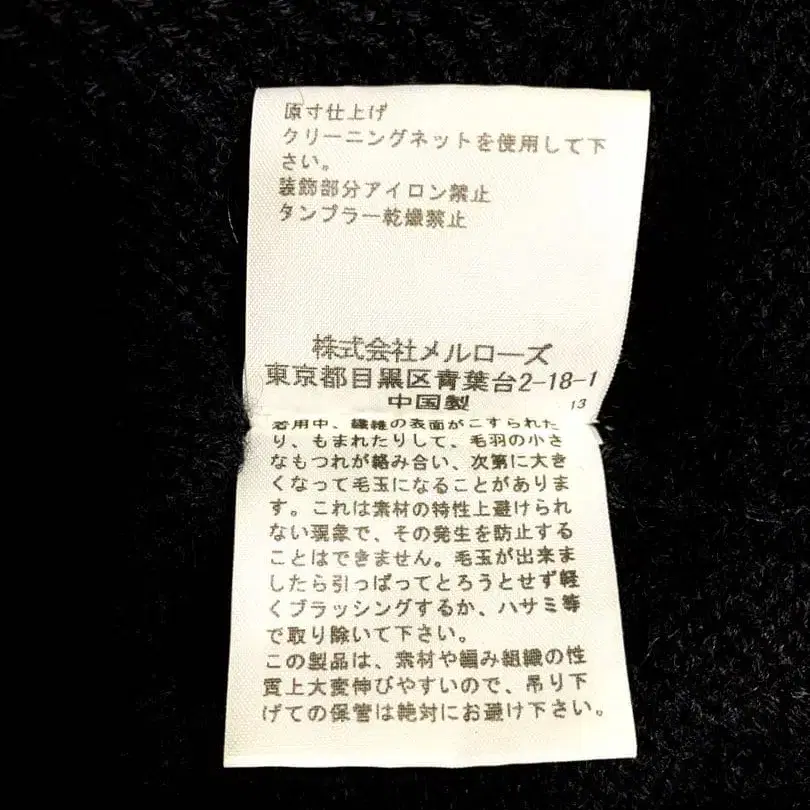 原寸仕上げ
クリーニングネットを使用して下
さい。
装飾部分アイロン禁止
タンブラー乾燥禁止
株式会社メルローズ
東京都目黒区青葉台2-18-1
中国製
13
着用中、繊維の表面がこすられた
り、もまれたりして、毛羽の小さ
なもつれが絡み合い、次第に大き
くなって毛玉になることがありま
す。これは素材の特性上避けられ
ない現象で、その発生を防止する
ことはできません。毛玉が出来ま
したら引っぱってとろうとせず軽
くブラッシングするか、ハサミ等
で取り除いて下さい。
この製品は、素材や編み組織の性
質上大変伸びやすいので、吊り下
げての保管は絶対にお避け下さい。